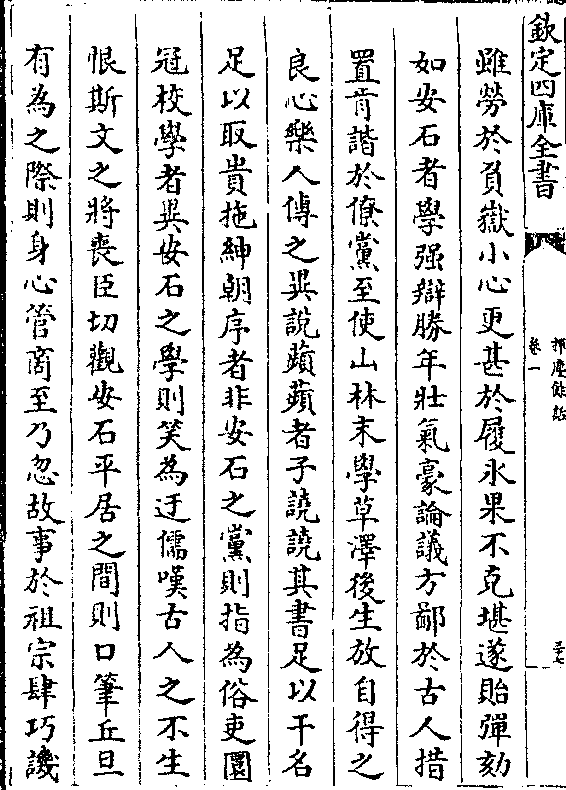 欽定四庫全書
揮麈餘話
卷一
三十七
雖勞於負嶽小心更甚於履氷果不克堪遂貽彈劾
如安石者學强辯勝年壯氣豪論議方鄙於古人措
置肯諧於僚黨至使山林末學草澤後生放自得之
良心樂人傳之異說蘋蘋者子譊譊其書足以干名
足以取貴拖紳朝序者非安石之黨則指為俗吏圜
冠校學者異安石之學則笑為迂儒嘆古人之不生
恨斯文之將喪臣切觀安石平居之間則口筆丘旦
有為之際則身心管商至乃忽故事於祖宗肆巧譏